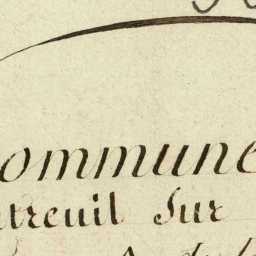 ommune
treuil Sur